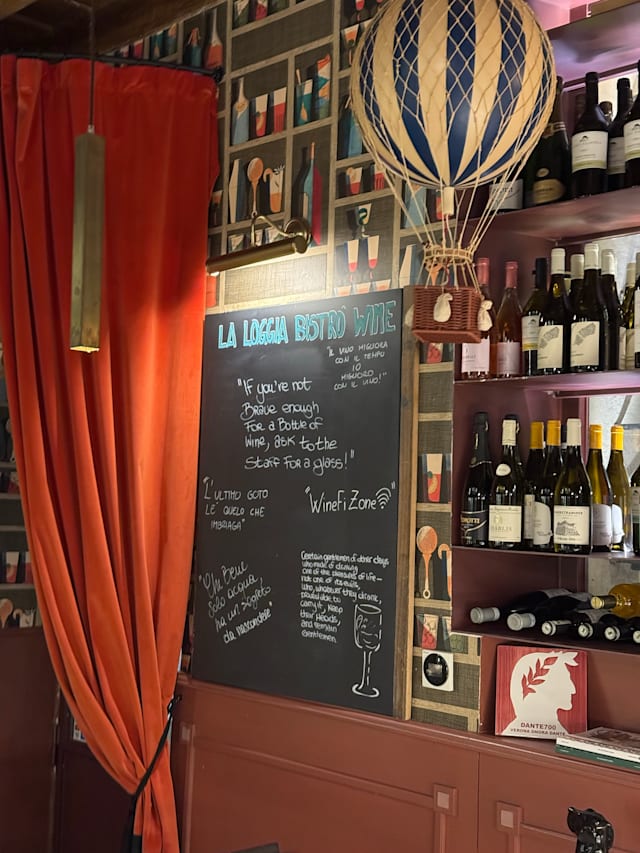 LA LOGGIA BISTRÒ WINE
"IL VINO MIGLIORA
CON IL TEMPO
IO
MIGLIORO
CON IL VINO!"
"If you're not
Brave enough
For a Bottle of
Wine, ask to the
Staff For a glass!"
"L'ULTIMO GOTO
L'E' QUELO CHE
IMBRIAGA"
"WineFiZone"
"Chi beve
Solo acqua,
ha un segreto
da nascondere"
Certain gentlemen of other days
who made of drinking
one of the pleasures of life—
not one of its evils,
who, whatever they drank,
proved able to
carry it, keep
their heads,
and remain
Gentlemen.
DANTE700
VERONA ONORA DANTE